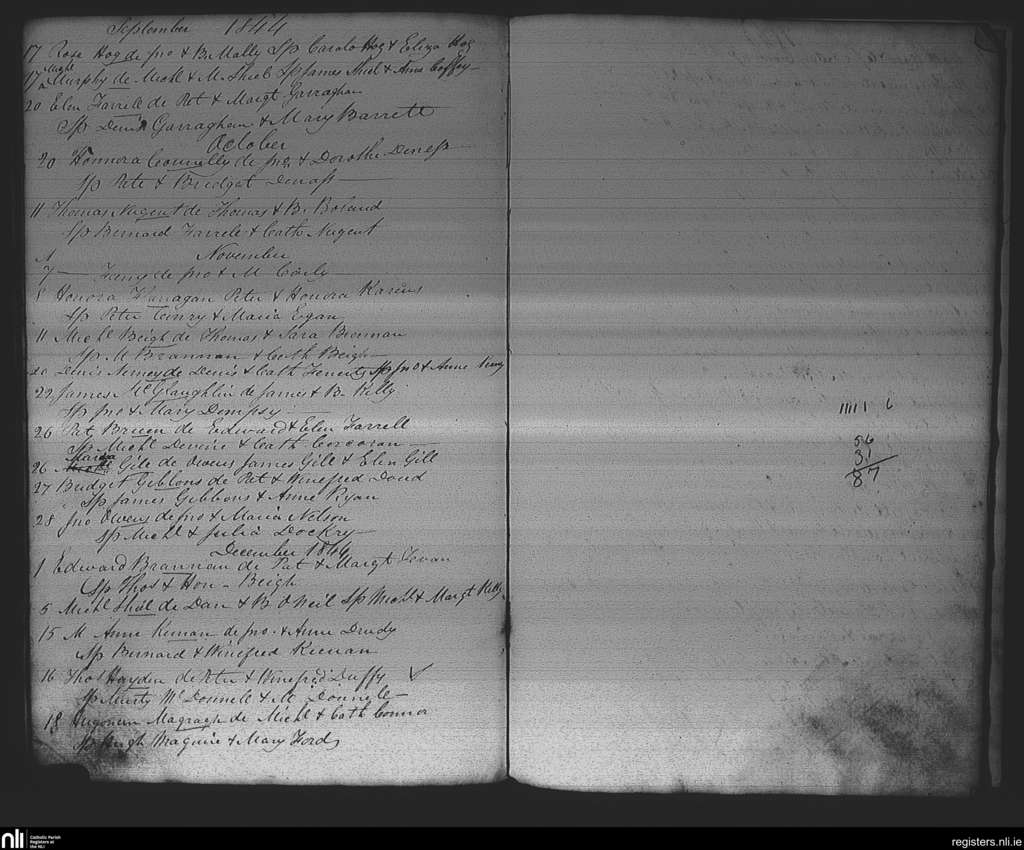 September 1844
17 Rose Hog de Jno & B. Mally Sp Carolo Hog & Eliza Hog
Michl
17 Murphy de Michl & M. Shiel Sp James Shiel & Ann Coffey
20 Elen Farrell de Pat & Margt Garraghan
Sp Denis Garraghan & Mary Barrett
October
20 Honnora Connelly de Jno & Dorothe
Sp Pate & Bridget
11 Thomas Nugent de Thomas & B. Boland
Sp Bernard Farrele & Cath Nugent
November
7 — de Jno & M
8 Honora Flanagan Peter & Honora
Sp Peter & Maria Egan
11 Michl Beigh de Thomas & Sara Brennan
Sp M Brannan & Cath Beigh
20 Denis de Denis & Cath Sp Jno & Anne
22 James McGlaughlin de James & B. Kelly
Sp Jno & Mary Dempsy
26 Pat Brueen de Edward & Elen Farrell
Sp Michl Devine & Cath Corcoran
Maria
26 Gile de Owens James Gill & Elen Gill
27 Bridget Gibbons de Pat & Winefred Doud
Sp James Gibbons & Anne Ryan
28 Jno Owens de Jno & Maria Nelson
Sp Michl & Julia Dockry
December 1844
1 Edward Brannan de Pat & Margt
Sp Thos & Hon - Beigh
5 Michl Shiel de Dan & B. O Neil Sp Michl & Margt Kelly
15 M Anne Kernan de Jno & Anne Drudy
Sp Bernard & Winefred Keenan
16 Thos Hayden de Peter & Winefred Duffy ✓
Sp Murty McDonnell & M Donnele
18 Magragh de Michl & Cath Connor
Sp Hugh Maguire & Mary Ford
11111 6
56
31
87
nli Catholic Parish Registers at the NLI
registers.nli.ie